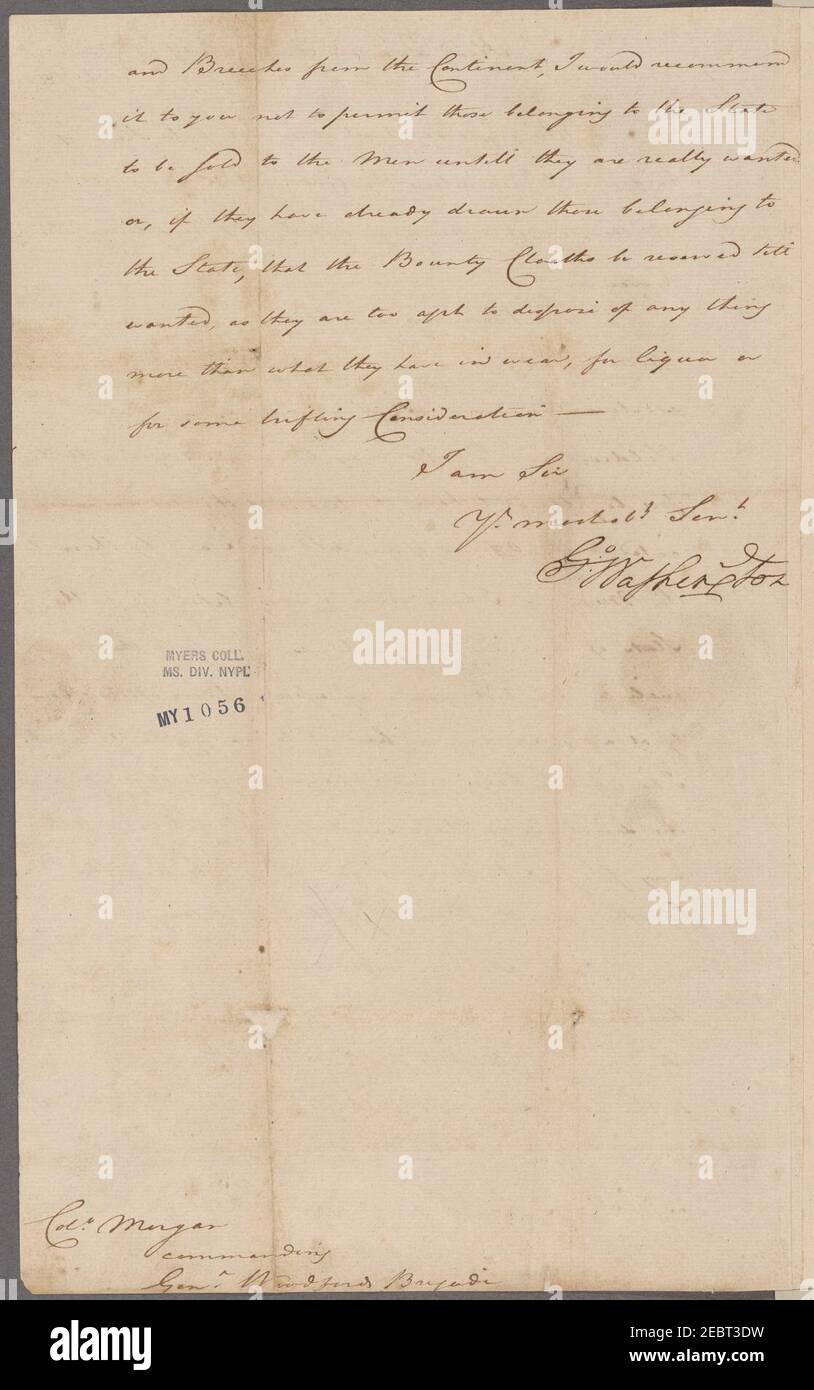 and Breeches from the Continent, I would recommend
it to you not to permit those belonging to the State
to be sold to the Men untill they are really wanted
or, if they have already drawn those belonging to
the State, that the Bounty Cloaths be reserved till
wanted, as they are too apt to dispose of any thing
more than what they have in wear, for liquor or
for some trifling Consideration —
I am Sir
Yr. most obt Servt.
Go: Washington
MYERS COLL.
MS. DIV. NYPL
MY1056
Colo. Morgan
commanding
Genl. Woodfords Brigade
alamy
Image ID: 2EBT3DW
www.alamy.com